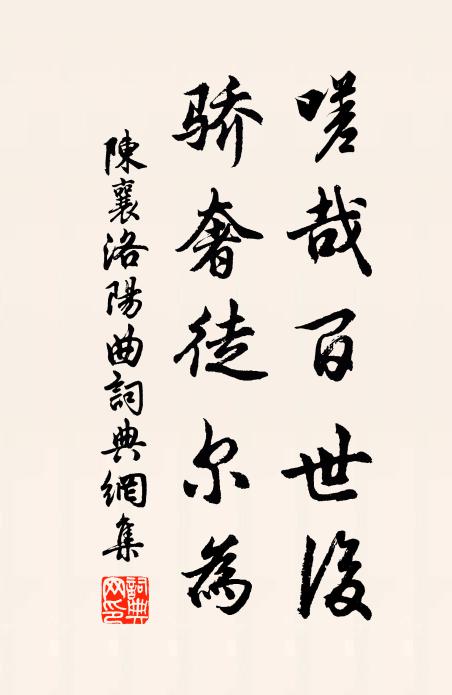 嗟哉百世後
骄奢徒尔為
陳襄洛陽曲詞典網集
詞典网印